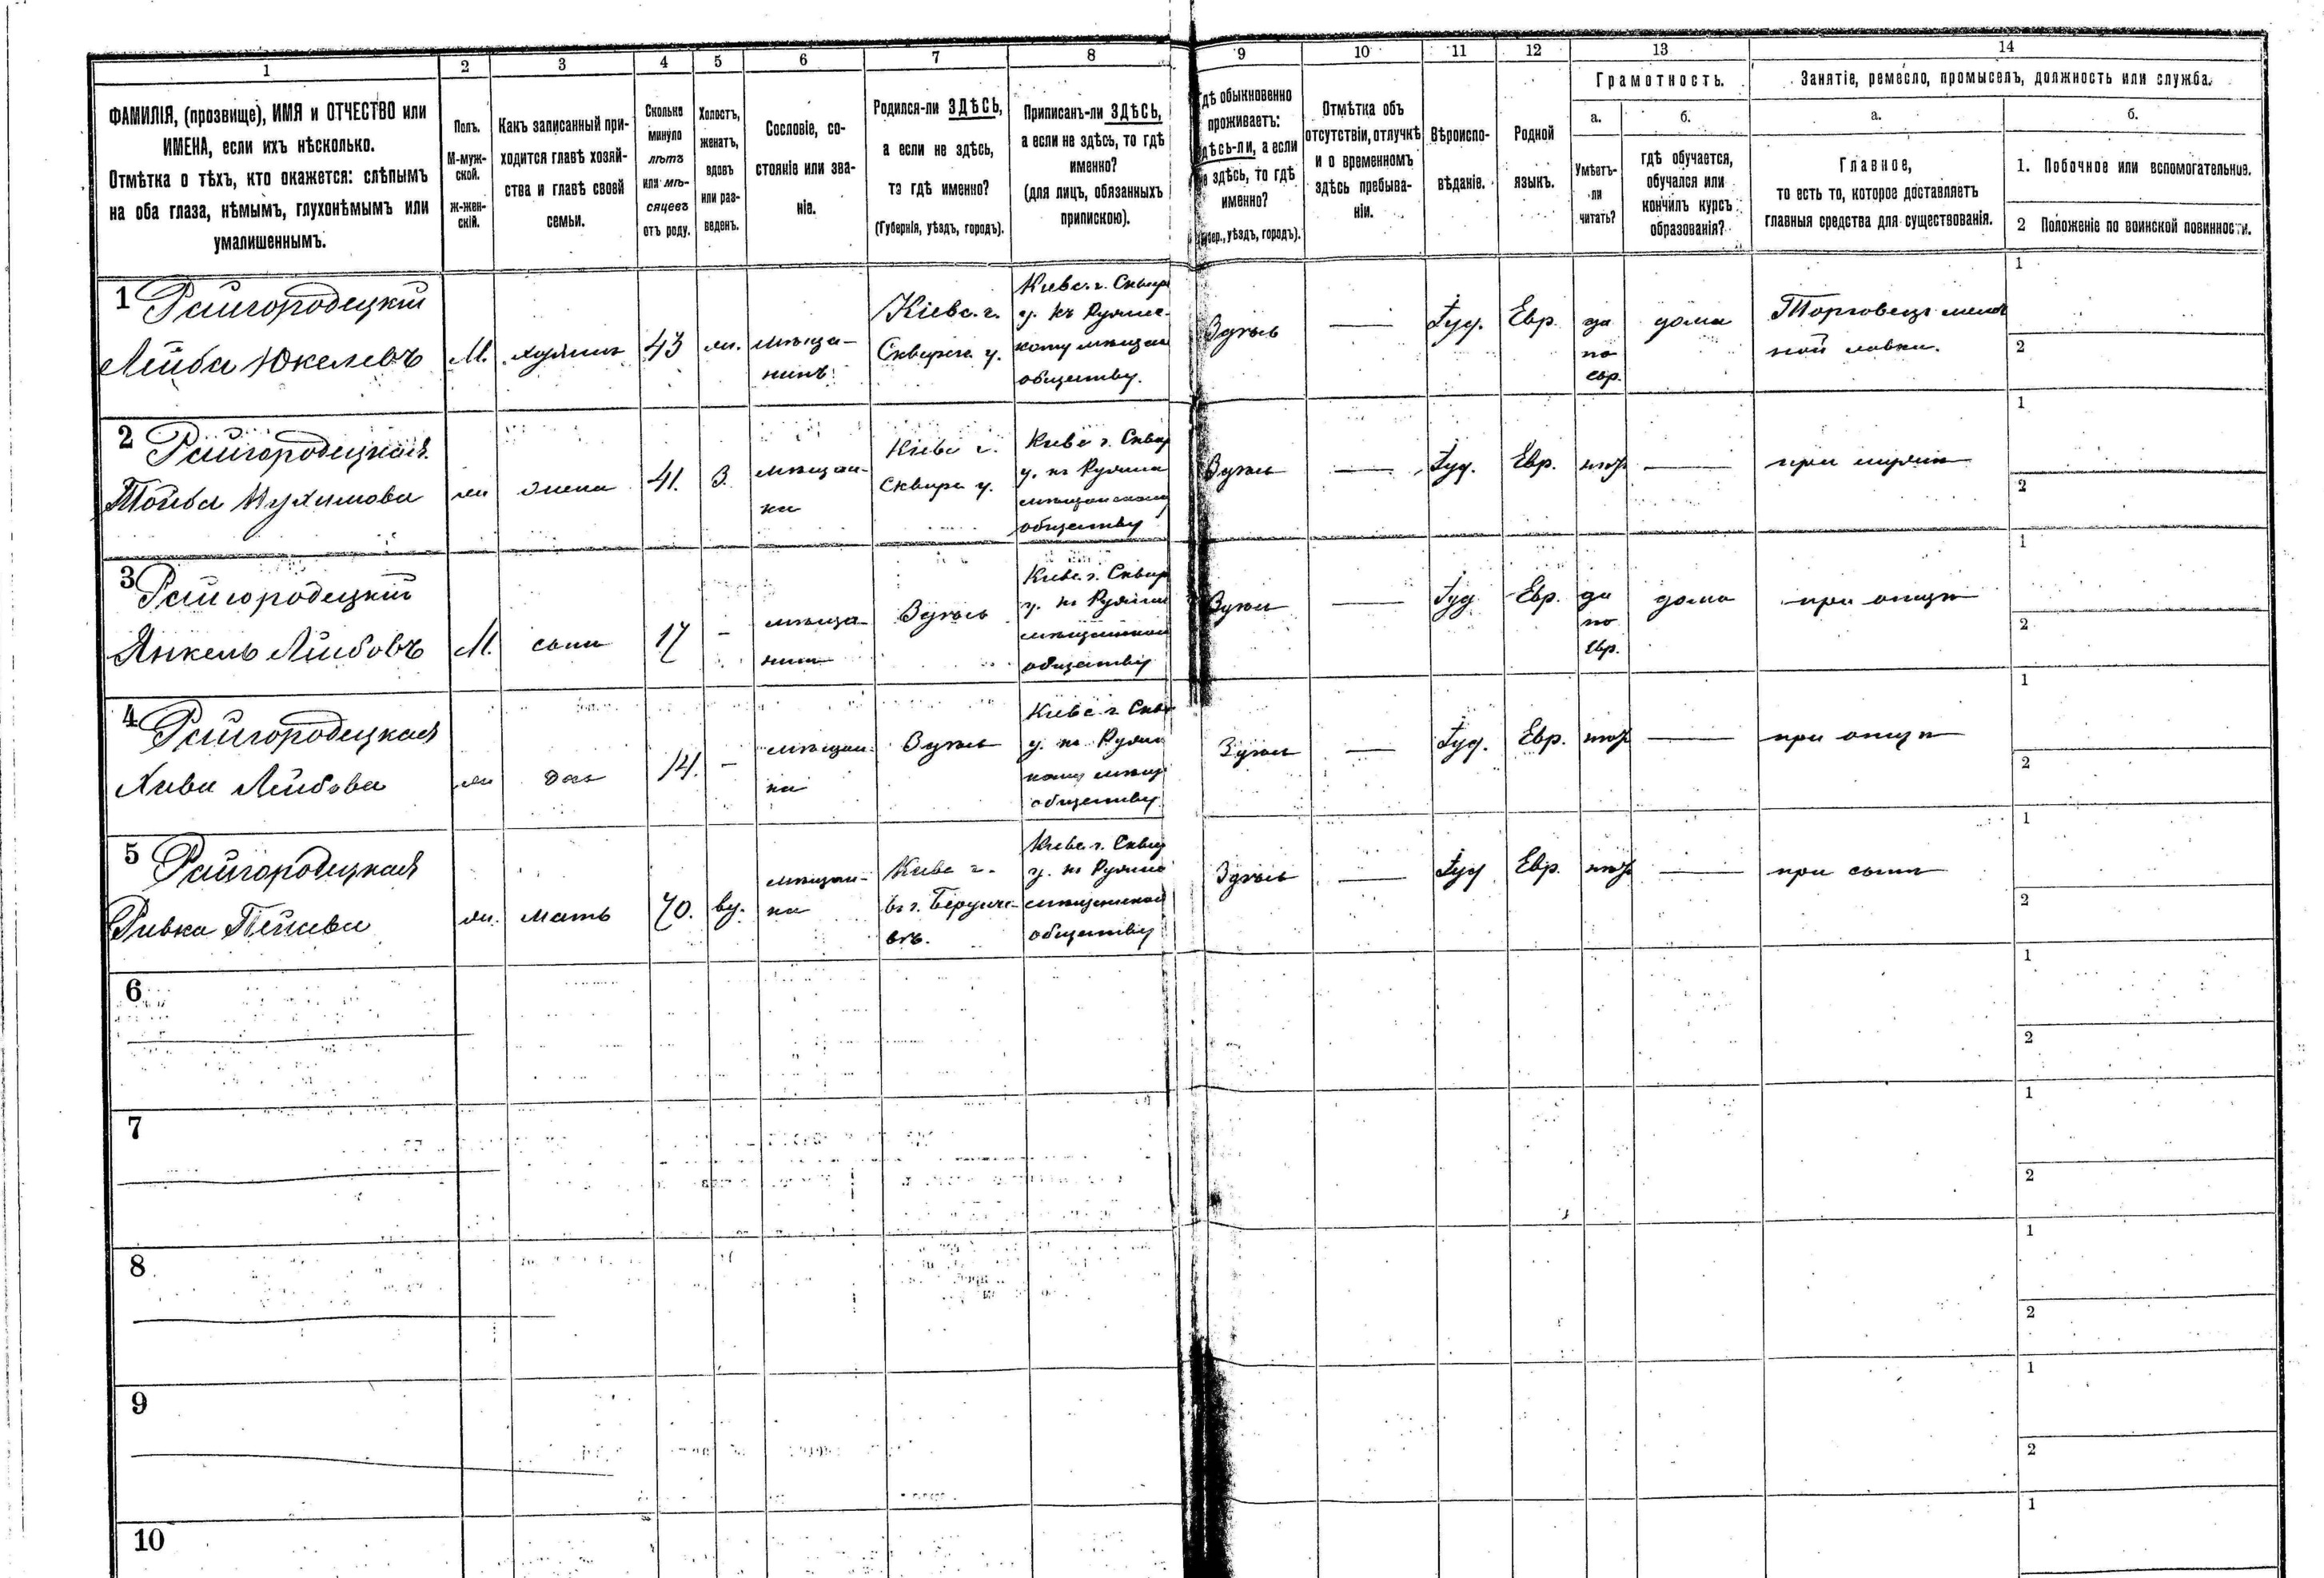 1 2 3 4 5 6 7 8 9 10 11 12 13 14
ФАМИЛІЯ, (прозвище), ИМЯ и ОТЧЕСТВО или
ИМЕНА, если ихъ нѣсколько.
Отмѣтка о тѣхъ, кто окажется: слѣпымъ
на оба глаза, нѣмымъ, глухонѣмымъ или
умалишеннымъ.
Полъ.
М-муж-
ской.
ж-жен-
скій.
Какъ записанный при-
ходится главѣ хозяй-
ства и главѣ своей
семьи.
Сколько
минуло
лѣтъ
или мѣ-
сяцевъ
отъ роду.
Холостъ,
женатъ,
вдовъ
или раз-
веденъ.
Сословіе, со-
стояніе или зва-
ніе.
Родился-ли ЗДѢСЬ,
а если не здѣсь,
то гдѣ именно?
(Губернія, уѣздъ, городъ).
Приписанъ-ли ЗДѢСЬ,
а если не здѣсь, то гдѣ
именно?
(для лицъ, обязанныхъ
припискою).
дѣ обыкновенно
проживаетъ:
дѣсь-ли, а если
е здѣсь, то гдѣ
именно?
бер., уѣздъ, городъ).
Отмѣтка объ
отсутствіи, отлучкѣ
и о временномъ
здѣсь пребыва-
ніи.
Вѣроиспо-
вѣданіе.
Родной
языкъ.
Грамотность.
а.
Умѣетъ-
ли
читать?
б.
гдѣ обучается,
обучался или
кончилъ курсъ
образованія?
Занятіе, ремесло, промыселъ, должность или служба.
а.
Главное,
то есть то, которое доставляетъ
главныя средства для существованія.
б.
1. Побочное или вспомогательное.
2 Положеніе по воинской повинности.
1 Райгородецкій
Лейба Юкелевъ
М.
хозяинъ
43
жн.
мѣща-
нинъ
Кіевс. г.
Сквирск. у.
Кіевс. г. Сквир
у. къ Ружин-
кому мѣщан
обществу.
Здѣсь
—
Іуд.
Евр.
да
по
евр.
дома
Торговецъ мелоч
ной лавки.
1
2
2 Райгородецкая
Тойба Нухимова
жн
жена
41.
З.
мѣщан-
ка
Кіевс г.
Сквирс у.
Кіевс г. Сквир
у. къ Ружин
мѣщанскому
обществу
Здѣсь
—
Іуд.
Евр.
нѣтъ
—
при мужѣ
1
2
3 Райгородецкій
Янкель Лейбовъ
М.
сынъ
17
-
мѣща-
нинъ
Здѣсь
Кіевс. г. Сквир
у. къ Ружин
мѣщанском
обществу
Здѣсь
—
Іуд
Евр.
да
по
Евр.
дома
при отцѣ
1
2
4 Райгородецкая
Хива Лейбова
жн
доч
14.
-
мѣщан-
ка
Здѣсь
Кіевс г. Скв
у. къ Ружин
кому мѣщ
обществу
Здѣсь
—
Іуд.
Евр.
нѣтъ
—
при отцѣ
1
2
5 Райгородецкая
Ривка
жн.
мать
70.
вд.
мѣщан-
ка
Кіевс г.
въ г. Бердиче-
вѣ.
Кіевс. г. Сквир
у. къ Ружин
мѣщанском
обществу
Здѣсь
—
Іуд
Евр.
нѣтъ
—
при сынѣ
1
2
6
1
2
7
1
2
8
1
2
9
1
2
10
1